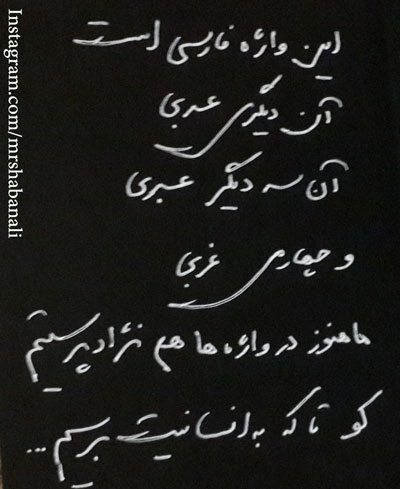 این واژه فارسی است
آن دیگری عربی
آن سه دیگر عبری
و چهارمی غربی
ما هنوز در واژه ها هم نژاد پرستیم
کو تا که به انسانیت برسیم ...
Instagram.com/mrshabanali